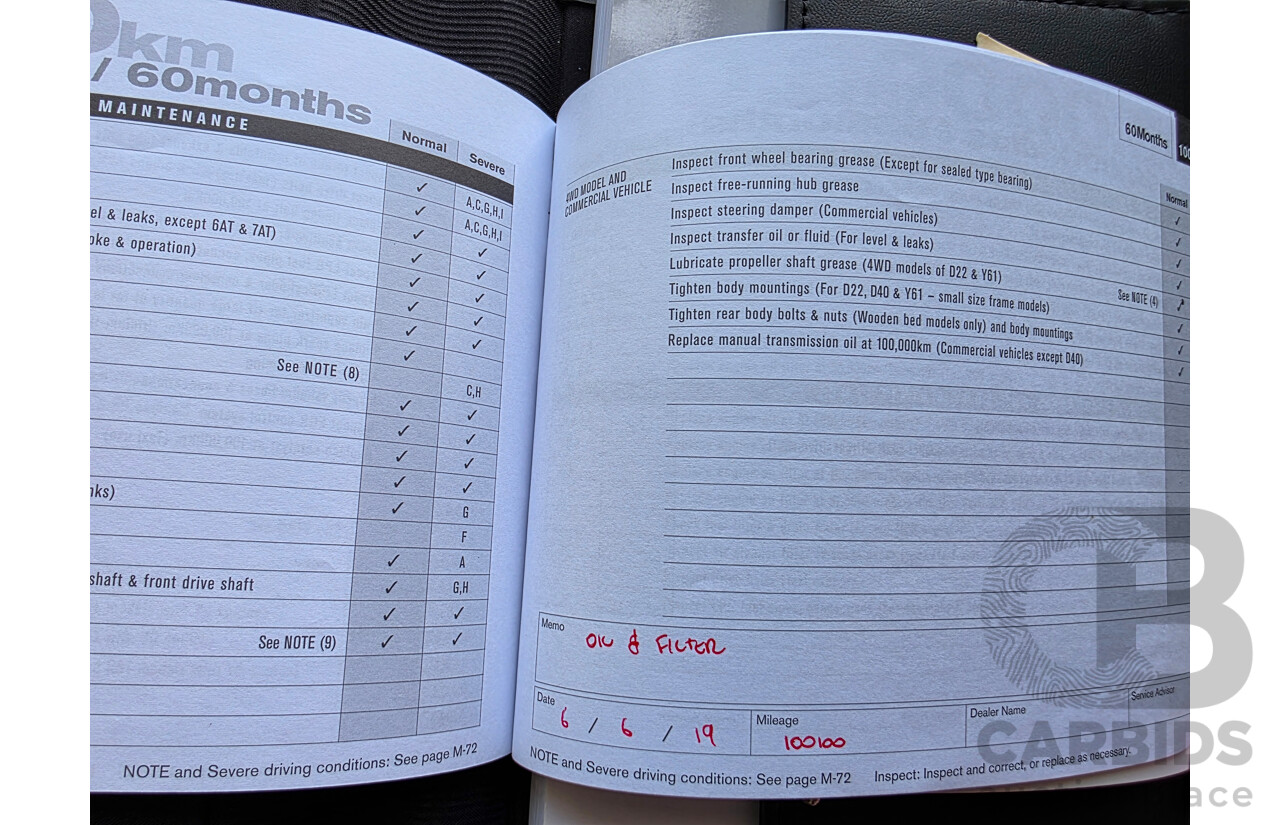 0km
/ 60months
MAINTENANCE
Normal
Severe
✓
A,C,G,H,I
✓
A,C,G,H,I
el & leaks, except 6AT & 7AT)
✓
✓
oke & operation)
✓
✓
✓
✓
✓
✓
✓
✓
See NOTE (8)
✓
C,H
✓
✓
✓
✓
✓
✓
✓
✓
nks)
✓
G
F
✓
A
shaft & front drive shaft
✓
G,H
✓
✓
See NOTE (9)
✓
✓
NOTE and Severe driving conditions: See page M-72
60Months
100
Normal
4WD MODEL AND
COMMERCIAL VEHICLE
Inspect front wheel bearing grease (Except for sealed type bearing)
✓
Inspect free-running hub grease
✓
Inspect steering damper (Commercial vehicles)
✓
Inspect transfer oil or fluid (For level & leaks)
✓
Lubricate propeller shaft grease (4WD models of D22 & Y61)
See NOTE (4)
Tighten body mountings (For D22, D40 & Y61 – small size frame models)
✓
Tighten rear body bolts & nuts (Wooden bed models only) and body mountings
✓
Replace manual transmission oil at 100,000km (Commercial vehicles except D40)
✓
Memo
OIL & FILTER
Date
6 / 6 / 19
Mileage
100100
Dealer Name
Service Advisor
NOTE and Severe driving conditions: See page M-72
Inspect: Inspect and correct, or replace as necessary.
CB
CARBIDS
ace